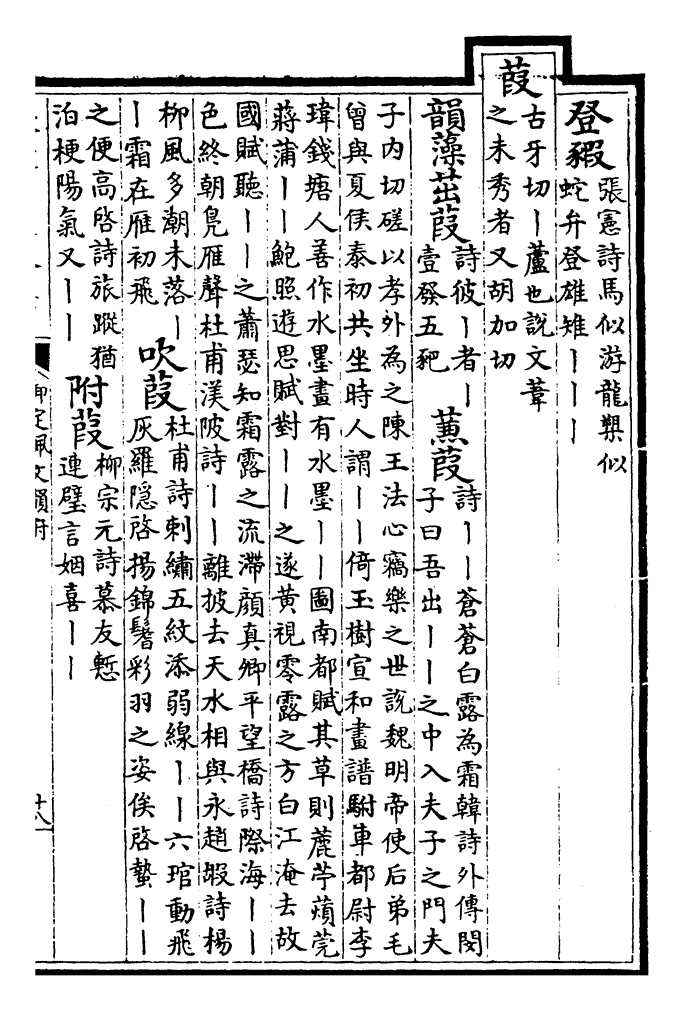 登豭
張憲詩馬似游龍槊似
蛇弁登雄雉丨丨丨
葭
古牙切丨蘆也說文葦
之未秀者又胡加切
韻藻茁葭
詩彼丨者丨
壹發五豝
蒹葭
詩丨丨蒼蒼白露為霜韓詩外傳閔
子曰吾出丨丨之中入夫子之門夫
子内切磋以孝外為之陳王法心竊樂之世說魏明帝使后弟毛
曾與夏侯泰初共坐時人謂丨丨倚玉樹宣和畫譜駙車都尉李
瑋錢塘人善作水墨畫有水墨丨丨圖南都賦其草則藨苧薠莞
蔣蒲丨丨鮑照遊思賦對丨丨之遂黄視零露之方白江淹去故
國賦聽丨丨之蕭瑟知霜露之流滯顔真卿平望橋詩際海丨丨
色終朝鳧雁聲杜甫渼陂詩丨丨離披去天水相與永趙嘏詩楊
柳風多潮未落丨
丨霜在雁初飛
吹葭
杜甫詩刺繡五紋添弱線丨丨六琯動飛
灰羅隠啓揚錦鬐彩羽之姿俟啓蟄丨丨
之便高啓詩旅蹤猶
泊梗陽氣又丨丨
附葭
柳宗元詩慕友慙
連璧言姻喜丨丨
御定佩文韻府
十八